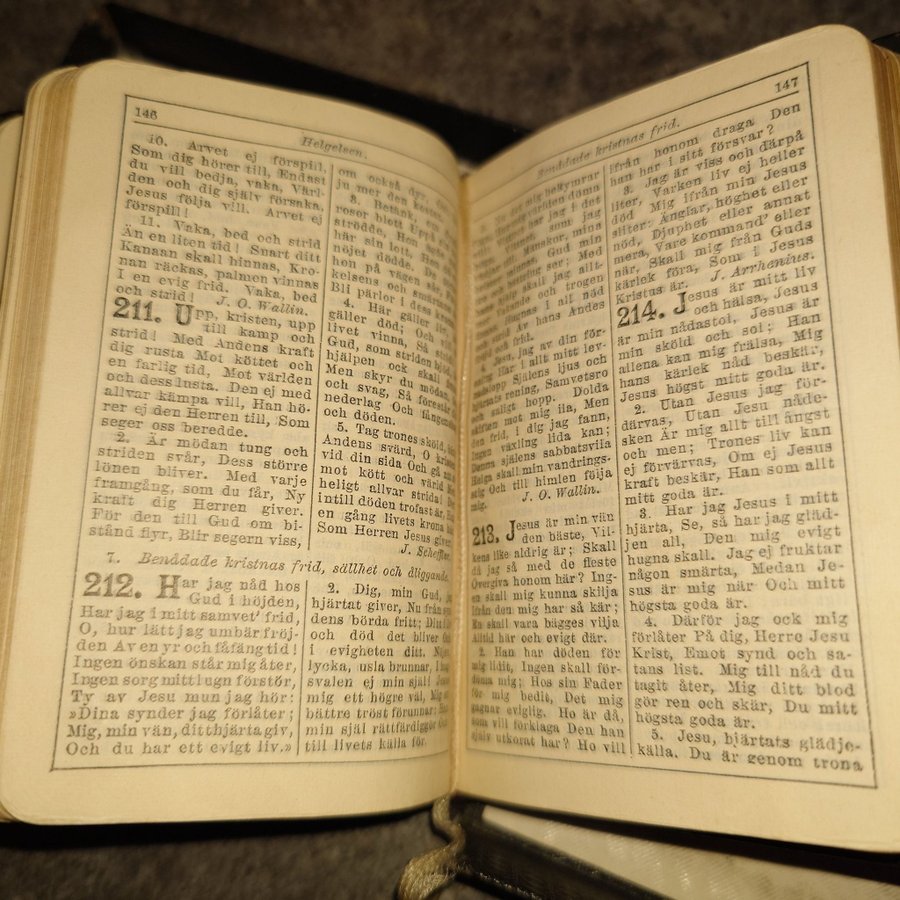 146
Helgelsen.
10. Arvet ej förspill,
Som dig hörer till, Endast
du vill bedja, vaka, Värl-
den och dig själv försaka,
Jesus följa vill. Arvet ej
förspill!
11. Vaka, bed och strid
Än en liten tid! Snart ditt
Kanaan skall hinnas, Kro-
nan räckas, palmen vinnas
I en evig frid. Vaka, bed
och strid! J. O. Wallin.
211. Upp, kristen, upp
till kamp och
strid! Med Andens kraft
dig rusta Mot köttet och
en farlig tid, Mot världen
och dess lusta. Den ej med
allvar kämpa vill, Han hö-
rer ej den Herren till, Som
seger oss beredde.
2. Är mödan tung och
striden svår, Dess större
lönen bliver. Med varje
framgång, som du får, Ny
kraft dig Herren giver.
För den till Gud om bi-
stånd flyr, Blir segern viss,
om också dyr,
ju mer den kostar.
3. Betänk,
rosor blott Uppå
strödde, Hon
här sin lott,
nöjet dödde.
hon på vägen
kelsens och smärtans
Bli pärlor i dess
4. Här gäller
gäller död; Och
livet vinna, Så
Gud, som striden
hjälpen ock skall
Men skyr du mödan,
och svag, Så förestår
nederlag Och fångenskap
och döden.
5. Tag trones sköld,
Andens svärd, O kristen
vid din sida Och gå
mot kött och värld
heligt allvar strida!
intill döden trofast är,
en gång livets krona
Som Herren Jesus giver.
J. Scheffler.
7. Benådade kristnas frid, sällhet och åliggande.
212. Har jag nåd hos
Gud i höjden,
Har jag i mitt samvet' frid,
O, hur lätt jag umbär fröj-
den Av en yr och fåfäng tid!
Ingen önskan står mig åter,
Ingen sorg mitt lugn förstör,
Ty av Jesu mun jag hör:
»Dina synder jag förlåter;
Mig, min vän, ditt hjärta giv,
Och du har ett evigt liv.»
2. Dig, min Gud,
hjärtat giver, Nu från
dens börda fritt; Din
och död det bliver
i evigheten ditt.
lycka, usla brunnar,
svalen ej min själ!
mig ett högre väl,
bättre tröst förunnar:
min själ rättfärdiggör
till livets källa för.
147
Benådade kristnas frid.
mig bekymrar
döma
har jag i det
Vunnit, som jag
Människor, mina
Gud min
ser: Med
hjälp skall jag allt-
Vandre och trogen
Hugnas i all nöd
Av hans Andes
och frid.
4. Jesu, jag av din för-
Har i allt mitt lev-
Själens ljus och
hjärtats rening, Samvetsro
saligt hopp. Dolda
mot mig ila, Men
den frid, i dig jag fann,
Ingen växling lida kan;
Denna själens sabbatsvila
Helga skall min vandrings-
stig Och till himlen följa
mig. J. O. Wallin.
213. Jesus är min vän
den bäste, Vil-
kens like aldrig är; Skall
då jag så med de fleste
Övergiva honom här? Ing-
en skall mig kunna skilja
Ifrån den mig har så kär;
En skall vara bägges vilja
Alltid här och evigt där.
2. Han har döden för
mig lidit, Ingen skall för-
döma mig; Hos sin Fader
för mig bedit, Det mig
gagnar eviglig. Ho är då,
som vill förklaga Den han
själv utkorat har? Ho vill
ifrån honom draga Den
han har i sitt försvar?
3. Jag är viss och därpå
liter, Varken liv ej heller
död Mig ifrån min Jesus
sliter: Änglar, höghet eller
nöd, Djuphet eller annat
mera, Vare kommand' eller
när, Skall mig från Guds
kärlek föra, Som i Jesus
Kristus är. J. Arrhenius.
214. Jesus är mitt liv
och hälsa, Jesus
är min nådastol, Jesus är
min sköld och sol; Han
allena kan mig frälsa, Mig
hans kärlek nåd beskär,
Jesus högst mitt goda är.
2. Utan Jesus jag för-
därvas, Utan Jesu nåde-
sken Är mig allt till ångst
och men; Trones liv kan
ej förvärvas, Om ej Jesus
kraft beskär, Han som allt
mitt goda är.
3. Har jag Jesus i mitt
hjärta, Se, så har jag gläd-
jen all, Den mig evigt
hugna skall. Jag ej fruktar
någon smärta, Medan Je-
sus är mig när Och mitt
högsta goda är.
4. Därför jag ock mig
förlåter På dig, Herre Jesu
Krist, Emot synd och sa-
tans list. Mig till nåd du
tagit åter, Mig ditt blod
gör ren och skär, Du mitt
högsta goda är.
5. Jesu, hjärtats glädje-
källa. Du är genom trona